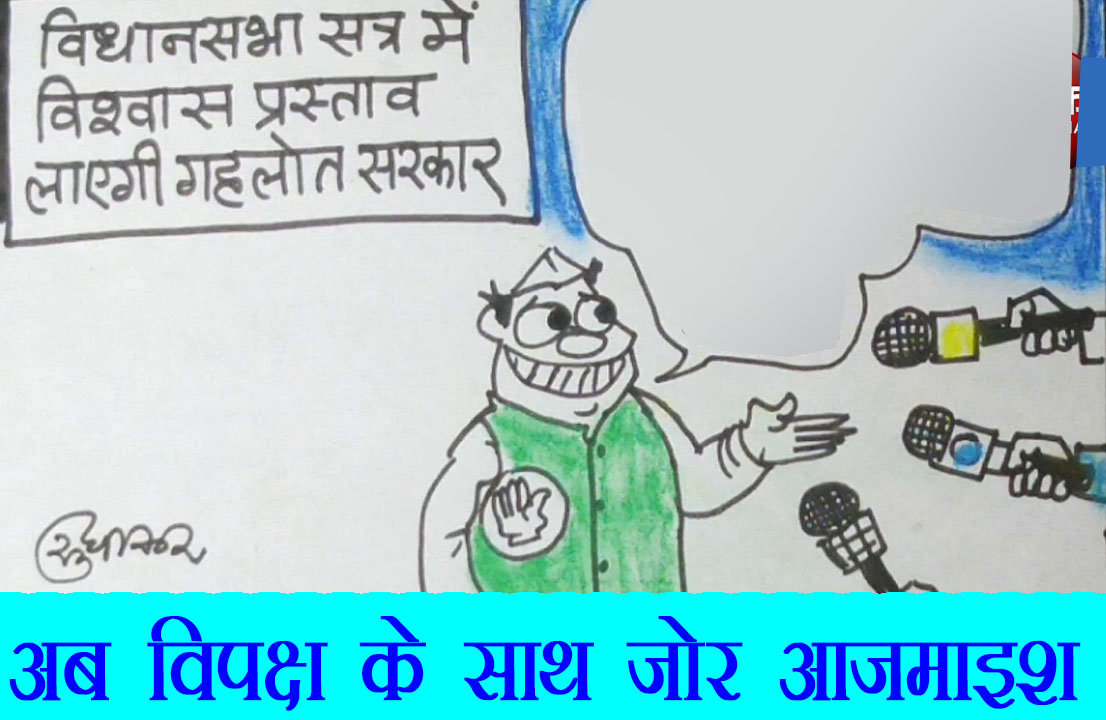 विधानसभा सत्र में
विश्वास प्रस्ताव
लाएगी गहलोत सरकार
सुधाकर
अब विपक्ष के साथ जोर आजमाइश